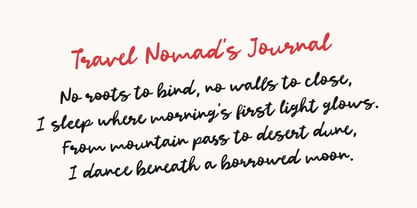 Travel Nomad's Journal
No roots to bind, no walls to close,
I sleep where morning's first light glows.
From mountain pass to desert dune,
I dance beneath a borrowed moon.